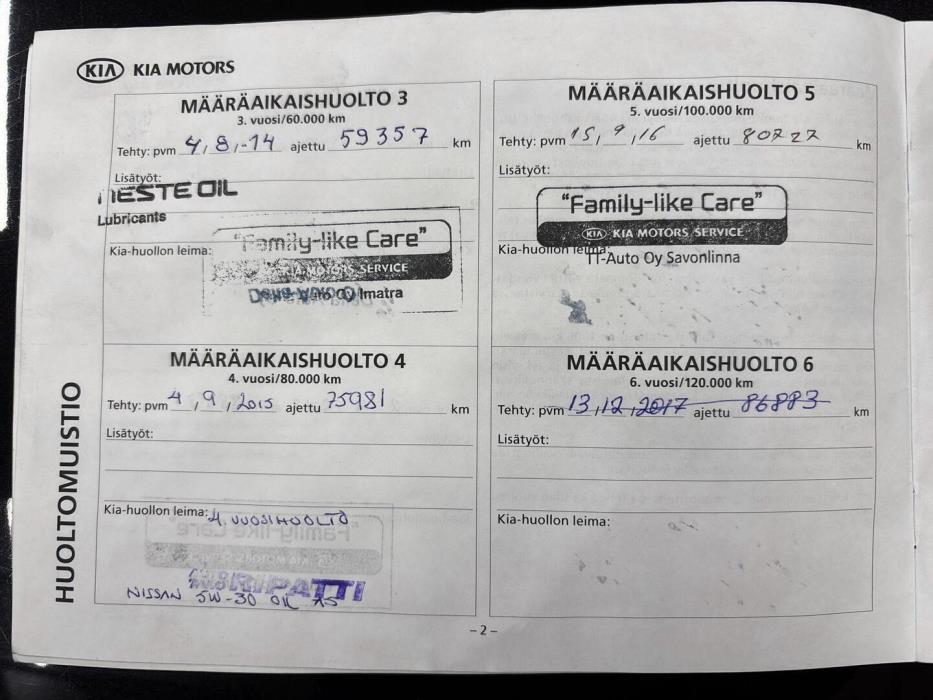 KIA KIA MOTORS
MÄÄRÄAIKAISHUOLTO 3
3. vuosi/60.000 km
Tehty: pvm 4,8,-14 ajettu 59357 km
Lisätyöt:
NESTE OIL
Lubricants
Kia-huollon leima:
"Family-like Care"
KIA MOTORS SERVICE
Auto Oy Imatra
MÄÄRÄAIKAISHUOLTO 4
4. vuosi/80.000 km
Tehty: pvm 4,9,2015 ajettu 75981 km
Lisätyöt:
Kia-huollon leima: 4. VUOSIHUOLTO
"Family-like Care"
NISSAN 5W-30 OIL A5
MÄÄRÄAIKAISHUOLTO 5
5. vuosi/100.000 km
Tehty: pvm 15,9,16 ajettu 80727 km
Lisätyöt:
"Family-like Care"
KIA KIA MOTORS SERVICE
Kia-huollon leima:
TT-Auto Oy Savonlinna
MÄÄRÄAIKAISHUOLTO 6
6. vuosi/120.000 km
Tehty: pvm 13,12,2017 ajettu 86883 km
Lisätyöt:
Kia-huollon leima:
HUOLTOMUISTIO
-2-